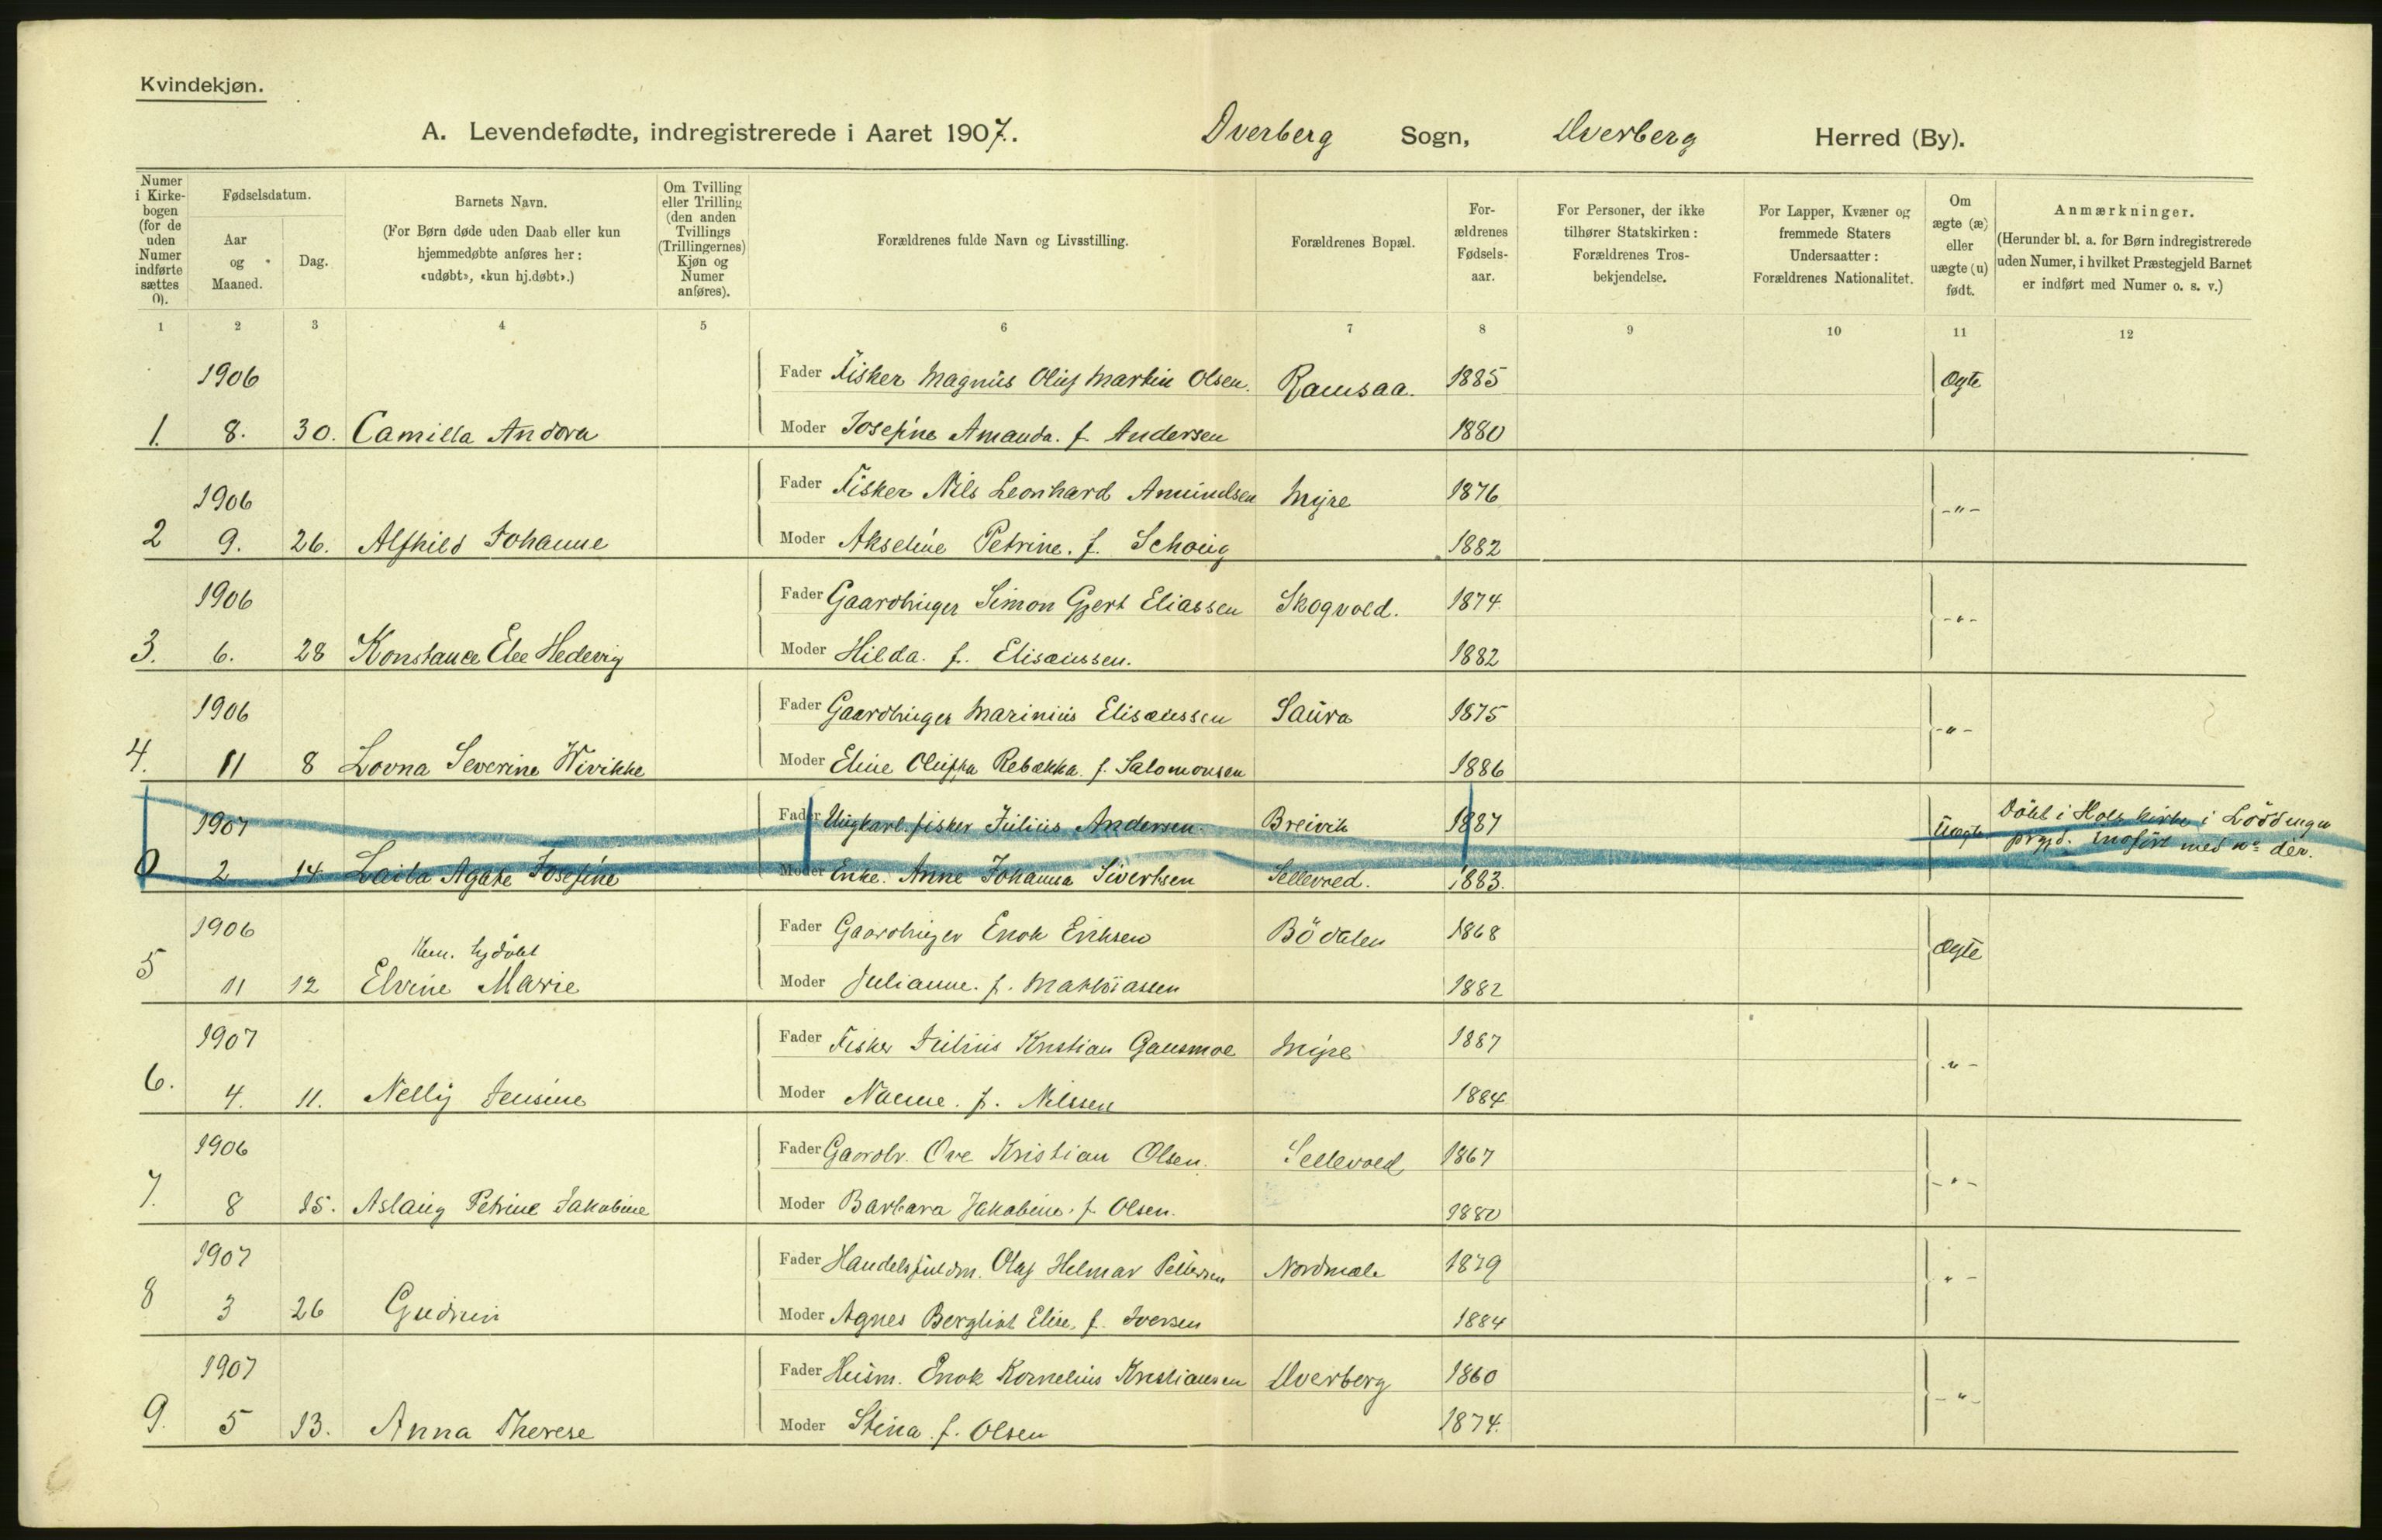 Kvindekjøn.
A. Levendefødte, indregistrerede i Aaret 1907. Dverberg Sogn, Dverberg Herred (By).
Numer i Kirkebogen (for de uden Numer indførte sættes 0).
Fødselsdatum.
Aar og Maaned.
Dag.
Barnets Navn.
(For Børn døde uden Daab eller kun hjemmedøbte anføres her: «udøbt», «kun hj.døbt».)
Om Tvilling eller Trilling (den anden Tvillings (Trillingernes) Kjøn og Numer anføres).
Forældrenes fulde Navn og Livsstilling.
Forældrenes Bopæl.
Forældrenes Fødselsaar.
For Personer, der ikke tilhører Statskirken: Forældrenes Trosbekjendelse.
For Lapper, Kvæner og fremmede Staters Undersaatter: Forældrenes Nationalitet.
Om ægte (æ) eller uægte (u) født.
Anmærkninger.
(Herunder bl. a. for Børn indregistrerede uden Numer, i hvilket Præstegjeld Barnet er indført med Numer o. s. v.)
1 2 3 4 5 6 7 8 9 10 11 12
1906 Fader Fisker Magnus Oluf Martin Olsen. Ramsaa. 1885 Ægte
1. 8. 30. Camilla Andora Moder Josefine Amanda. f. Andersen 1880
1906 Fader Fisker Nils Leonhard Amundsen Myre 1876 -"-
2 9. 26. Alfhild Johanne Moder Akseline Petrine. f. Schoug 1882
1906 Fader Gaardbruger Simon Gjert Eliassen Skogvold. 1874 -"-
3. 6. 28 Konstance Else Hedevig Moder Hilda. f. Elisæussen. 1882
1906 Fader Gaardbruger Marinius Elisæussen Saura 1875 -"-
4. 11 8 Lovna Severine Wivikke Moder Eline Oluffa Rebekka. f. Salomonsen 1886
1907 Fader Ungkarl. fisker Julius Andersen. Breivik 1887 Uægte Döbt i Hols kirke i Lödingen
0 2 14 Laila Agate Josefine Moder Enke. Anne Johanna Sivertsen Sellevold. 1883. prgjd. indfört med no der.
1906 Fader Gaardbruger Enok Eriksen Bödalen 1868 Ægte
Kun. hjdöbt
5 11 12 Elvine Marie Moder Julianne. f. Mathiassen 1882
1907 Fader Fisker Julius Kristian Gausmoe Myre 1887 -"-
6. 4. 11. Nelly Jensine Moder Nanne. f. Nilssen 1884
1906 Fader Gaardbr. Ove Kristian Olsen. Sellevold 1867 -"-
7. 8 15. Aslaug Petrine Jakobine Moder Barbara Jakobine. f. Olsen. 1880
1907 Fader Handelsfuldm. Olaf Helmar Pettersen Nordmele 1879 -"-
8 3 26 Gudrun Moder Agnes Bergliot Elise. f. Iversen 1884
1907 Fader Husm. Enok Kornelius Kristiansen Dverberg 1860 -"-
9. 5 13. Anna Therese Moder Stina. f. Olsen 1874.